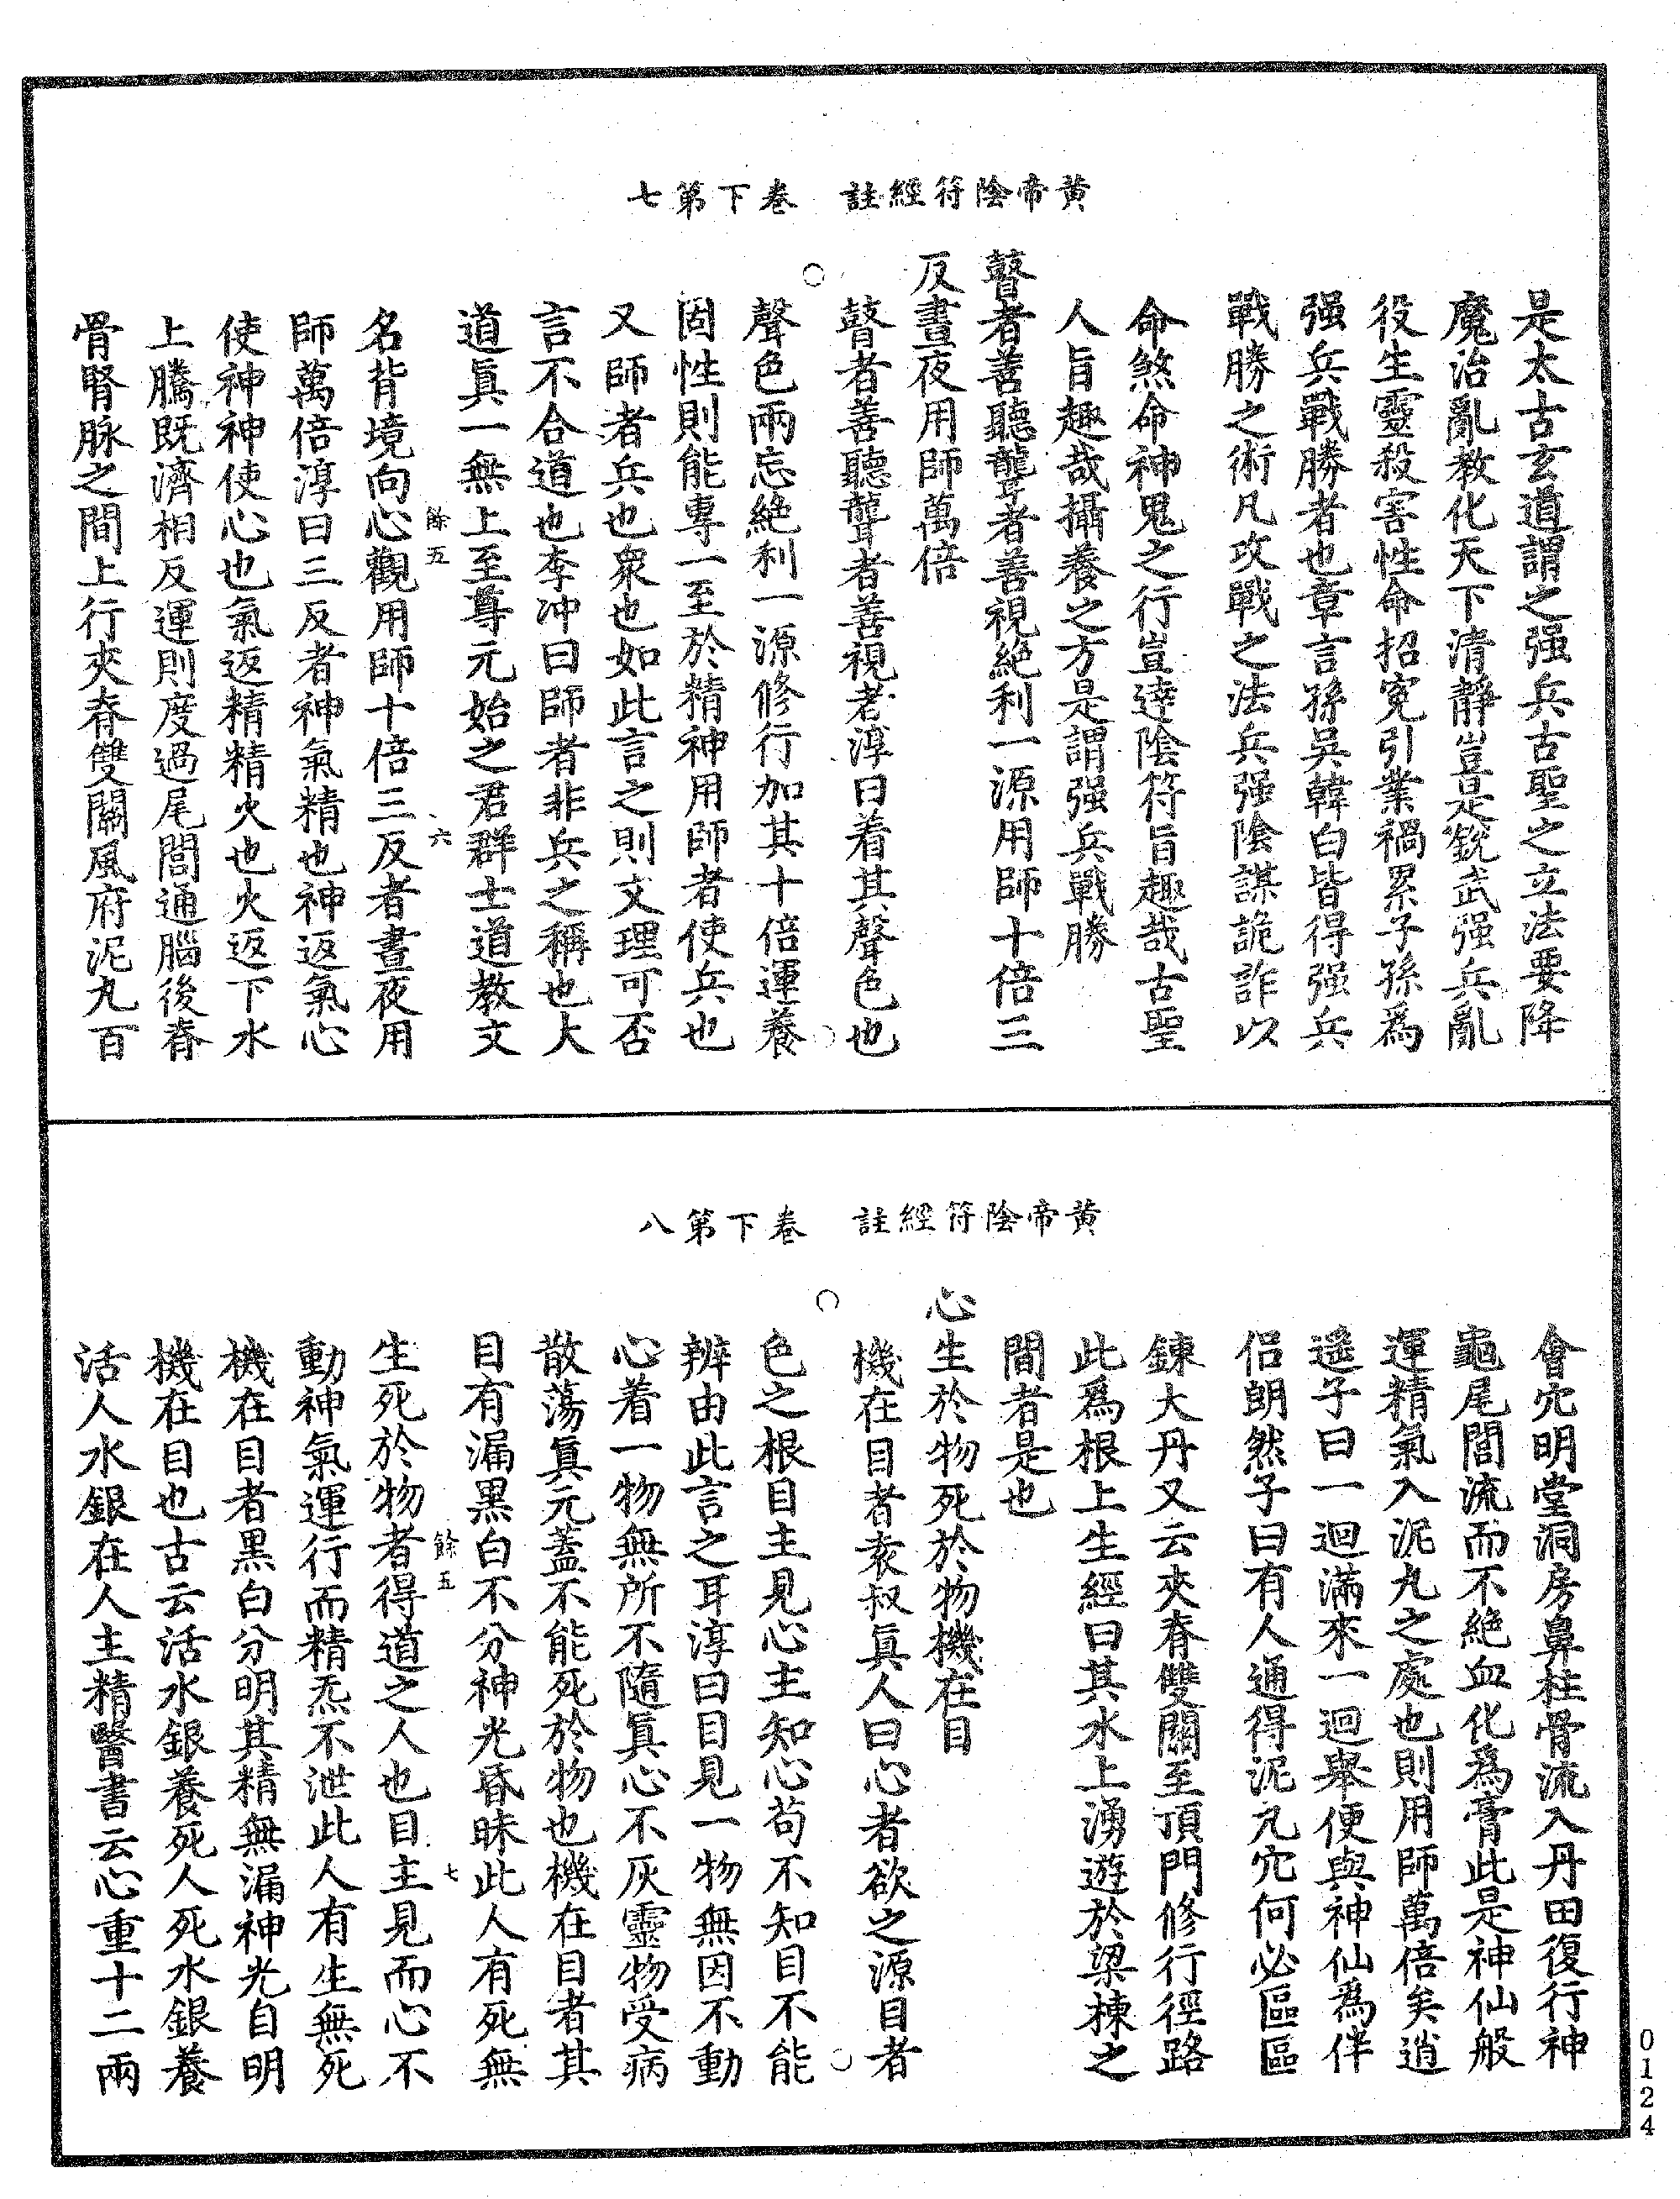 黃帝陰符經註　卷下第七
是太古玄道謂之强兵古聖之立法要降
魔治亂教化天下清靜豈是銳武强兵亂
役生靈殺害性命招寃引業禍累子孫爲
强兵戰勝者也章言孫吳韓白皆得强兵
戰勝之術凡攻戰之法兵强陰謀詭詐以
命煞命神鬼之行豈達陰符旨趣哉古聖
人旨趣哉攝養之方是謂强兵戰勝
瞽者善聽聾者善視絶利一源用師十倍三
反晝夜用師萬倍
瞽者善聽聾者善視者淳曰着其聲色也
聲色兩忘絶利一源修行加其十倍運養
固性則能專一至於精神用師者使兵也
又師者兵也衆也如此言之則文理可否
言不合道也李冲曰師者非兵之稱也大
道眞一無上至尊元始之君群士道教文
餘五　六
名背境向心觀用師十倍三反者晝夜用
師萬倍淳曰三反者神氣精也神返氣心
使神神使心也氣返精精火也火返下水
上騰既濟相反運則度過尾閭通腦後脊
骨腎脉之間上行夾脊雙關風府泥丸百
黃帝陰符經註　卷下第八
會穴明堂洞房鼻柱骨流入丹田復行神
龜尾閭流而不絶血化爲膏此是神仙般
運精氣入泥丸之處也則用師萬倍矣逍
遥子曰一迴滿來一迴舉便與神仙為伴
侣朗然子曰有人通得泥丸穴何必區區
鍊大丹又云夾脊雙關至頂門修行徑路
此爲根上生經曰其水上湧遊於梁棟之
間者是也
心生於物死於物機在目
機在目者袁叔眞人曰心者欲之源目者
色之根目主見心主知心苟不知目不能
辨由此言之耳淳曰目見一物無因不動
心着一物無所不隨眞心不灰靈物受病
散蕩眞元蓋不能死於物也機在目者其
目有漏黑白不分神光昏昧此人有死無
餘五　七
生死於物者得道之人也目主見而心不
動神氣運行而精炁不泄此人有生無死
機在目者黑白分明其精無漏神光自明
機在目也古云活水銀養死人死水銀養
活人水銀在人主精醫書云心重十二兩
0124